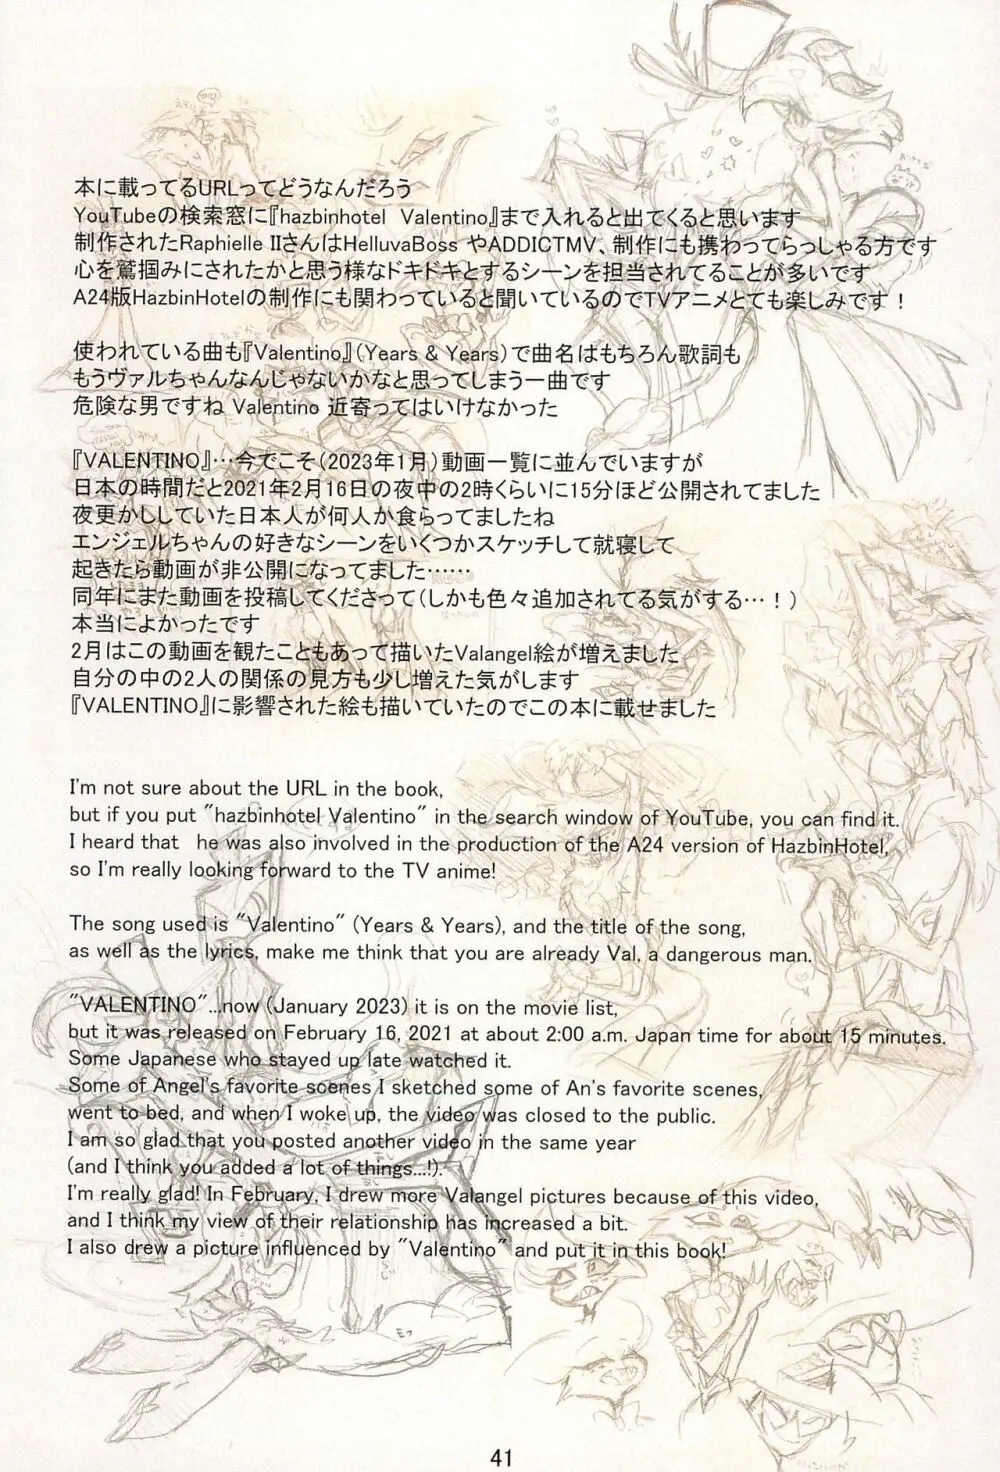 本に載ってるURLってどうなんだろう
YouTubeの検索窓に『hazbinhotel Valentino』まで入れると出てくると思います
制作されたRaphielle IIさんはHelluvaBoss やADDICTMV、制作にも携わってらっしゃる方です
心を鷲掴みにされたかと思う様なドキドキとするシーンを担当されてることが多いです
A24版HazbinHotelの制作にも関わっていると聞いているのでTVアニメとても楽しみです！
使われている曲も『Valentino』(Years & Years)で曲名はもちろん歌詞も
もうヴァルちゃんなんじゃないかなと思ってしまう一曲です
危険な男ですね Valentino 近寄ってはいけなかった
『VALENTINO』…今でこそ(2023年1月)動画一覧に並んでいますが
日本の時間だと2021年2月16日の夜中の2時くらいに15分ほど公開されてました
夜更かししていた日本人が何人か食らってましたね
エンジェルちゃんの好きなシーンをいくつかスケッチして就寝して
起きたら動画が非公開になってました……
同年にまた動画を投稿してくださって(しかも色々追加されてる気がする…！)
本当によかったです
2月はこの動画を観たこともあって描いたValangel絵が増えました
自分の中の2人の関係の見方も少し増えた気がします
『VALENTINO』に影響された絵も描いていたのでこの本に載せました
I'm not sure about the URL in the book,
but if you put "hazbinhotel Valentino" in the search window of YouTube, you can find it.
I heard that he was also involved in the production of the A24 version of HazbinHotel,
so I'm really looking forward to the TV anime!
The song used is "Valentino" (Years & Years), and the title of the song,
as well as the lyrics, make me think that you are already Val, a dangerous man.
"VALENTINO"...now (January 2023) it is on the movie list,
but it was released on February 16, 2021 at about 2:00 a.m. Japan time for about 15 minutes.
Some Japanese who stayed up late watched it.
Some of Angel's favorite scenes I sketched some of An's favorite scenes,
went to bed, and when I woke up, the video was closed to the public.
I am so glad that you posted another video in the same year
(and I think you added a lot of things...!).
I'm really glad! In February, I drew more Valangel pictures because of this video,
and I think my view of their relationship has increased a bit.
I also drew a picture influenced by "Valentino" and put it in this book!
41